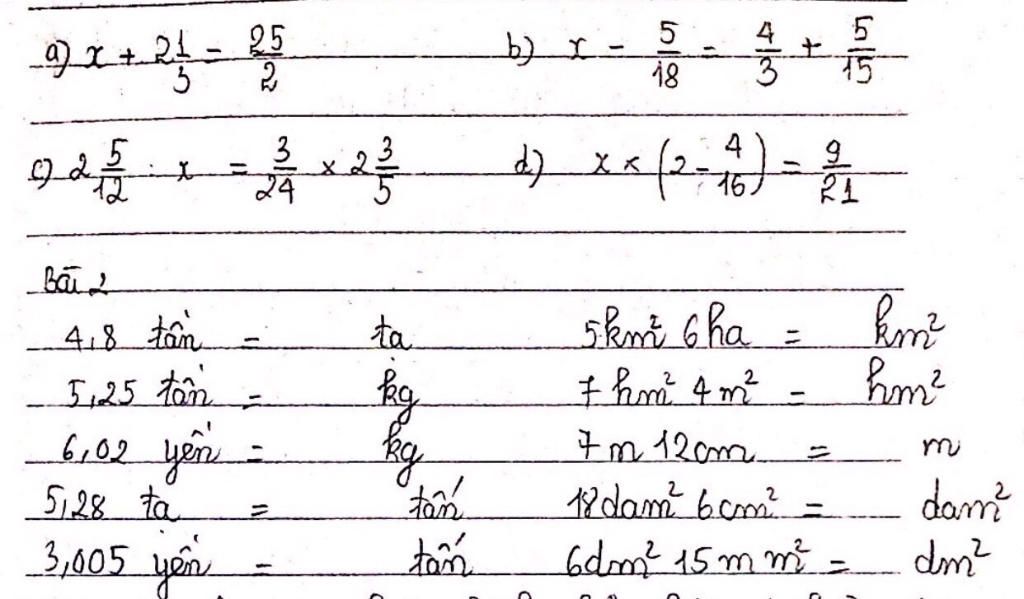 a) x + 2 1/3 = 25/2 b) x - 5/18 = 4/3 + 5/15
c) 2 5/12 : x = 3/24 × 2 3/5 d) x × (2 - 4/16) = 9/21
Bài 2
4,8 tấn = tạ 5km² 6ha = km²
5,25 tấn = kg 7 hm² 4m² = hm²
6,02 yến = kg 7m 12cm = m
5,28 tạ = tấn 18dam² 6cm² = dam²
3,005 yến = tấn 6dm² 15mm² = dm²